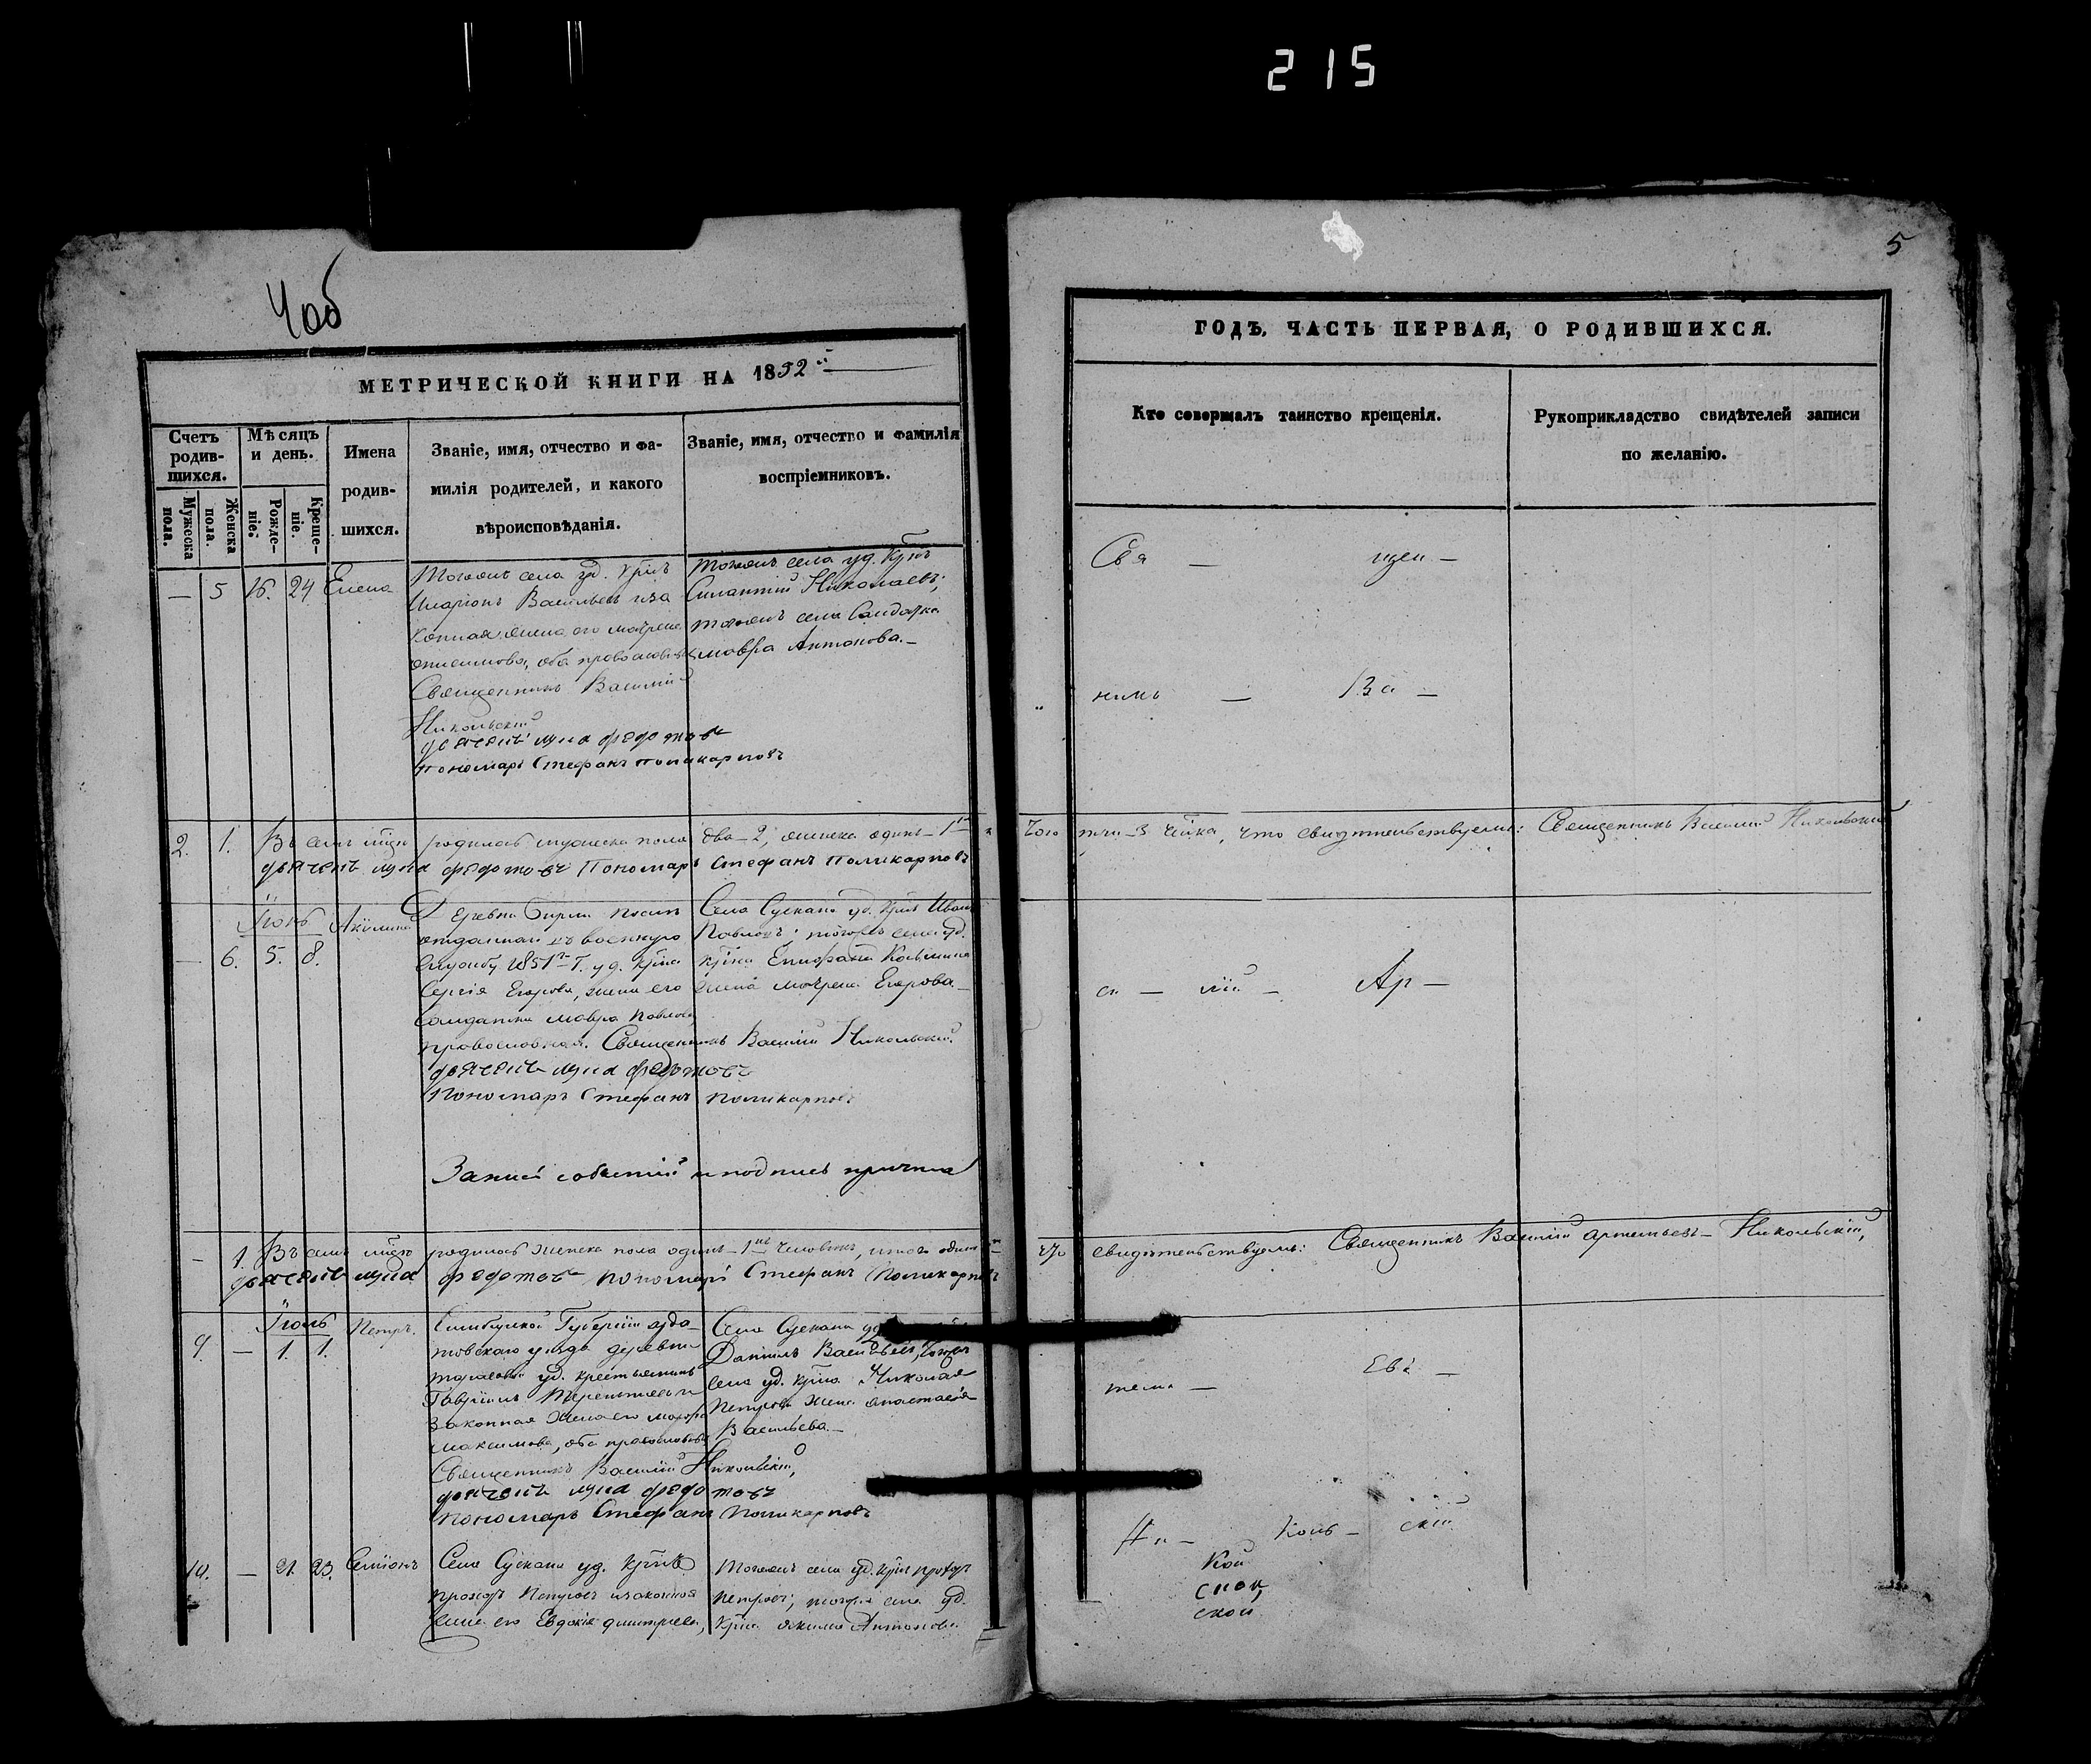 215
5
Чоб
МЕТРИЧЕСКОЙ КНИГИ НА 1852
Счетъ родив-шихся.
Мужеска пола.
Женска пола.
Мѣсяцъ и день.
Рожде-ніе.
Креще-ніе.
Имена родив-шихся.
Званіе, имя, отчество и фа-
милія родителей, и какого
вѣроисповѣданія.
Званіе, имя, отчество и фамилія
воспріемниковъ.
— 5 16. 24 Елена
Тогожъ села уд. крнъ
Иларіонъ Васильевъ и за
конная жена его Матрена
Онисимова, оба православн
Священникъ Василій
Никольскій
дьячекъ лука федотовъ
пономарь Стефанъ поликарповъ
Тогожъ села уд. крнъ
Силантій Николаевъ;
тогожъ села Солдатка
мавра Антонова.—
2. 1. Въ семъ мцѣ родилось мужеска пола два—2, женска одинъ—1
дьячекъ лука федотовъ Пономарь Стефанъ поликарповъ
Іюнь Акилина
— 6. 5. 8.
Деревни
отданнаго въ военную
службу 1851 г. уд. крна
Сергія Егорова, жена его
Солдатка мавра Павлова,
православная. Священникъ Василій Никольскій.
дьячекъ лука федотовъ
Пономарь Стефанъ поликарповъ
Села Сускана уд. крнъ Иванъ
Павловъ; тогожъ села уд.
крна Епифана Косьмина
жена матрена Егорова—
Запись событій и подпись причта
— 1. Въ семъ мцѣ родилось женска пола одинъ—1 человѣкъ, итого одинъ
дьячекъ лука федотовъ пономарь Стефанъ Поликарповъ
Іюль Петръ.
9. — 1. 1.
Симбирской Губерніи ардо-
товскаго уѣзда деревни
уд. крестьянинъ
Гавріилъ Терентьевъ и
законная жена его
максимова, оба православн
Священникъ Василій Никольскій,
дьячекъ лука федотовъ
Пономарь Стефанъ Поликарповъ
Села Сускана уд.
Даніилъ Васильевъ, тогожъ
села уд. крна Николая
Петрова жена анастасія
Васильева.—
10. — 21. 23. Симіонъ
Села Сускана уд. крнъ
прохоръ Петровъ и законная
жена его Евдокія димитріева,
Тогожъ села уд. крнъ
Петровъ; тогожъ села уд.
крна Антонова
ГОДЪ, ЧАСТЬ ПЕРВАЯ, О РОДИВШИХСЯ.
Кто совершалъ таинство крещенія.
Рукоприкладство свидѣтелей записи
по желанію.
Свя — щен —
никъ — Ва —
того три—3 чѣлка, что свидѣтельствуемъ: Священникъ Василій Никольскій
си — лій — Ар —
что свидѣтельствуемъ: Священникъ Василій Артемьевъ Никольскій,
темь — евъ —
Ни — коль — скій